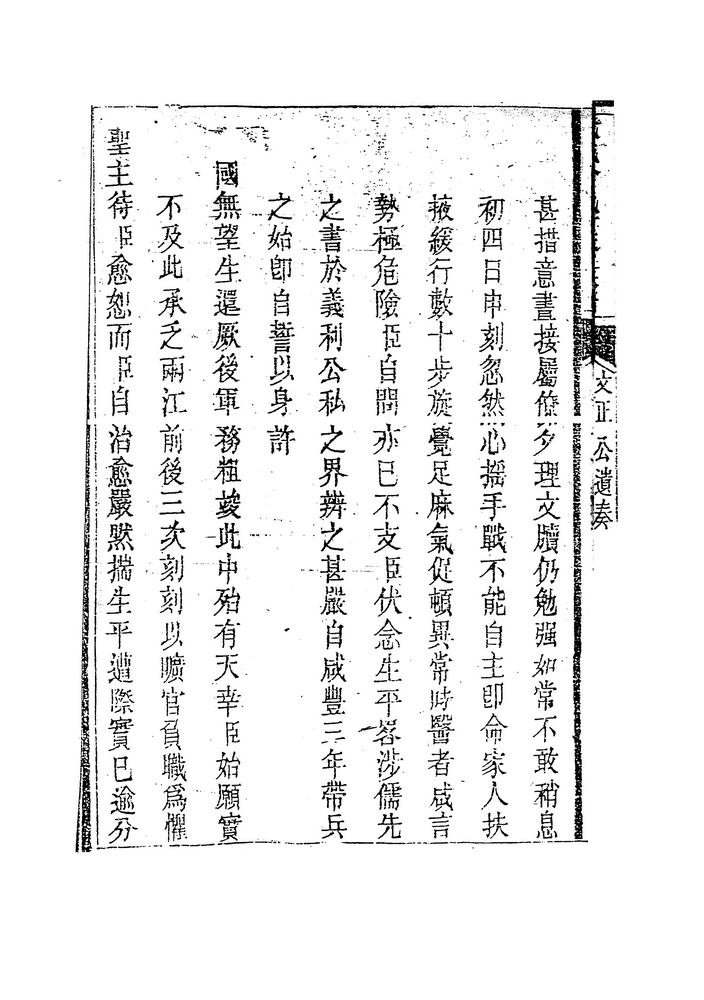 文正公遺奏
甚措意晝接屬僚夕理文牘仍勉强如常不敢稍息
初四日申刻忽然心搖手戰不能自主即命家人扶
掖緩行數十步旋覺足麻氣促頓異常時醫者咸言
勢極危險臣自問亦已不支臣伏念生平畧涉儒先
之書於義利公私之界辨之甚嚴自咸豐三年帶兵
之始即自誓以身許
國無望生還厥後軍務粗竣此中殆有天幸臣始願實
不及此承乏兩江前後三次刻刻以曠官負職爲懼
聖主待臣愈恕而臣自治愈嚴默揣生平遭際實已逾分